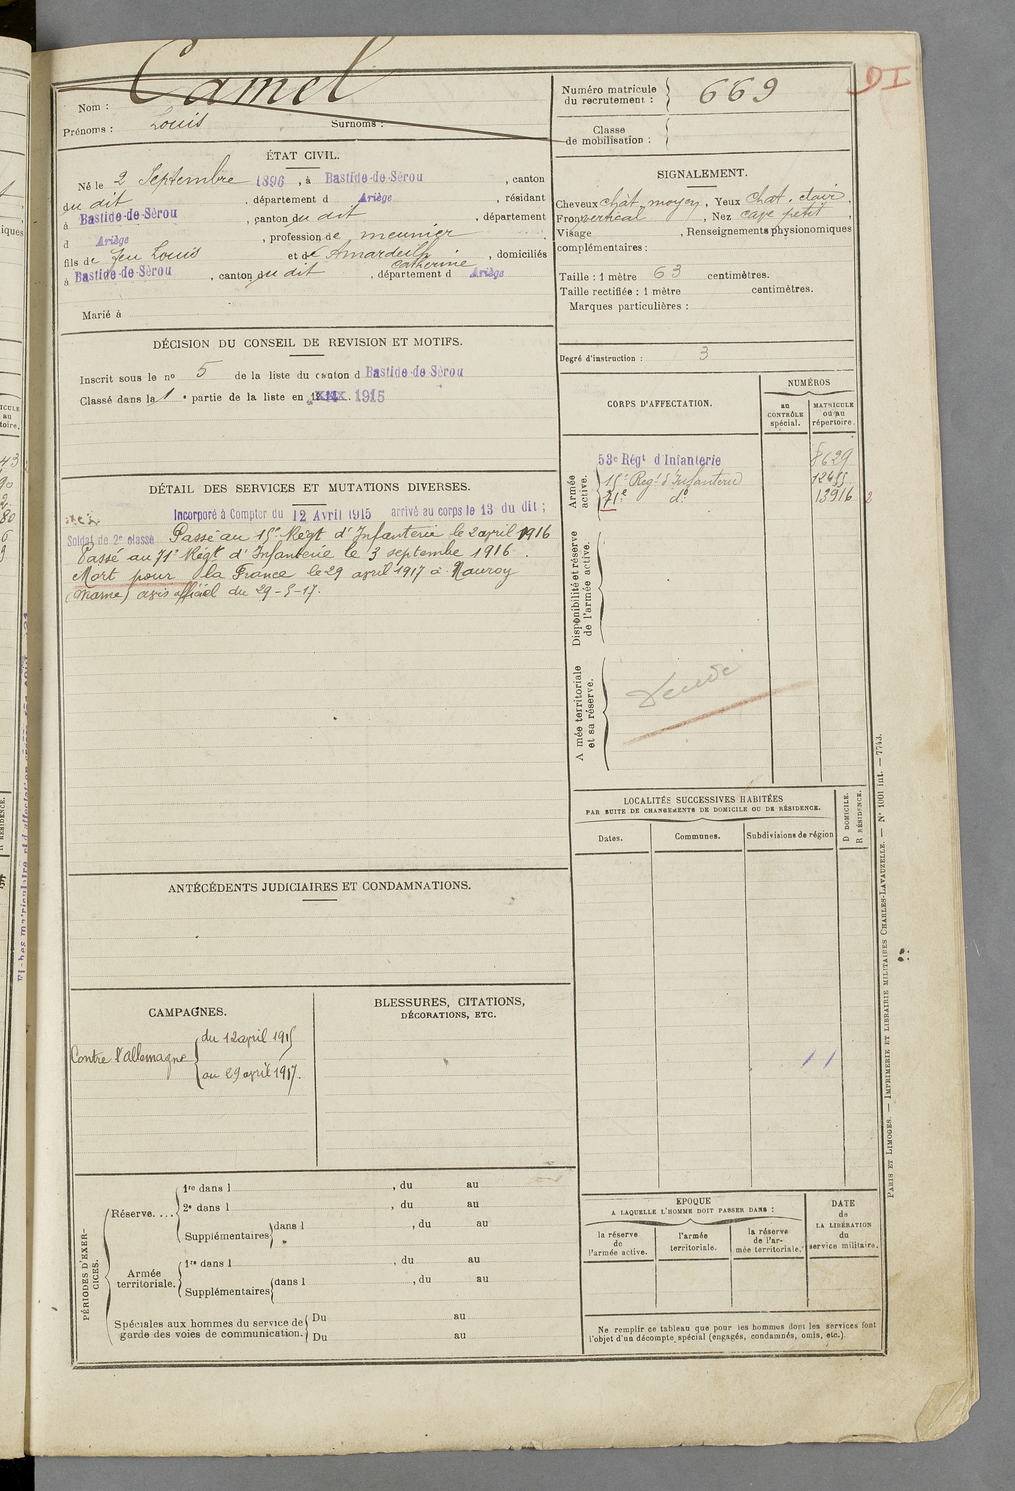 Nom : Camel
Prénoms : Louis Surnoms :
Numéro matricule du recrutement : 669
Classe de mobilisation :
DI
ÉTAT CIVIL.
Né le 2 Septembre 1896, à Bastide-de-Sérou, canton
du dit, département d Ariège, résidant
à Bastide-de-Sérou, canton du dit, département
d Ariège, profession de meunier
fils de feu Louis et de Amardeilh Catherine, domiciliés
à Bastide-de-Sérou, canton du dit, département d Ariège
Marié à
SIGNALEMENT.
Cheveux chât. moyen, Yeux chat. clair
Front vertical, Nez cave petit,
Visage , Renseignements physionomiques
complémentaires :
Taille : 1 mètre 63 centimètres.
Taille rectifiée : 1 mètre centimètres.
Marques particulières :
Degré d'instruction : 3
DÉCISION DU CONSEIL DE REVISION ET MOTIFS.
Inscrit sous le no 5 de la liste du canton d Bastide-de-Sérou
Classé dans la 1e partie de la liste en 1915
CORPS D'AFFECTATION.
NUMÉROS
au CONTRÔLE spécial.
MATRICULE ou au répertoire.
Armée active.
53e Régt d'Infanterie 8629
15e Reg.t d'Infanterie
71e do 13916
Disponibilité et réserve de l'armée active.
A mée territoriale et sa réserve.
DÉTAIL DES SERVICES ET MUTATIONS DIVERSES.
Incorporé à Compter du 12 Avril 1915 arrivé au corps le 13 du dit ;
Soldat de 2e classe Passé au 15e Régt d'Infanterie le 2 avril 1916
Passé au 71e Régt d'Infanterie le 3 septembre 1916.
Mort pour la France le 29 avril 1917 à Nauroy
(Marne) avis officiel du 29-5-17.
LOCALITÉS SUCCESSIVES HABITÉES
PAR SUITE DE CHANGEMENTS DE DOMICILE OU DE RÉSIDENCE.
Dates. Communes. Subdivisions de région
D DOMICILE.
R RÉSIDENCE.
ANTÉCÉDENTS JUDICIAIRES ET CONDAMNATIONS.
CAMPAGNES.
Contre l'allemagne
du 12 april 1915
au 29 april 1917.
BLESSURES, CITATIONS,
DÉCORATIONS, ETC.
PÉRIODES D'EXERCICES.
Réserve....
1re dans l , du au
2e dans l , du au
Supplémentaires dans l , du au
Armée territoriale.
1re dans l , du au
Supplémentaires dans l , du au
Spéciales aux hommes du service de garde des voies de communication.
Du au
Du au
EPOQUE
A LAQUELLE L'HOMME DOIT PASSER DANS :
la réserve de l'armée active.
l'armée territoriale.
la réserve de l'armée territoriale.
DATE de LA LIBÉRATION du service militaire.
Ne remplir ce tableau que pour les hommes dont les services font
l'objet d'un décompte spécial (engagés, condamnés, omis, etc.).
PARIS ET LIMOGES. — IMPRIMERIE ET LIBRAIRIE MILITAIRES CHARLES-LAVAUZELLE. — No 1001 int. — 7743.